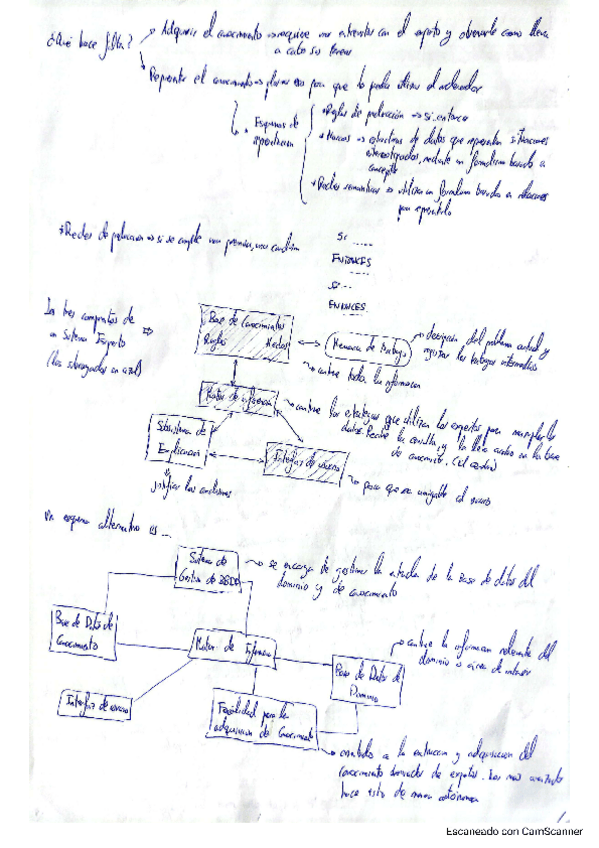 ¿Qué hace
Adquirir el conocimiento → requiere una entrevista con el experto y observarle como lleva
a cabo su tarea
Representar el conocimiento → para que lo pueda utilizar el ordenador
Esquemas de
representación
Reglas de producción → si..entonces
Marcos → estructuras de datos que representan situaciones
estereotipadas, mediante un formalismo basado a
concepto
Redes semánticas → utilizan un formalismo basado a relaciones
para representarlo
Reglas de producción → si se cumple una premisa, una conclusión
Si ....
ENTONCES
....
ENTONCES
Los tres componentes de
un Sistema Experto
(los subrayados en azul)
Base de Conocimientos
Reglas Hechos
Memoria de trabajo
del problema actual y
los trabajos intermedios
contiene toda la información
Motor de inferencia
contiene las estrategias que utilizan los expertos para manipular los
datos. Recibe la consulta y la lleva a cabo en la base
de conocimiento.
Subsistema de
Explicación
justificar las conclusiones
Interfaz de usuario
para que sea amigable al usuario
Un esquema alternativo es ...
Sistema de
Gestión de BBDD
se encarga de gestionar la entrada de la Base de datos del
dominio y de conocimiento
Base de Datos de
Conocimiento
Motor de Inferencia
Base de Datos del
Dominio
contiene la información relevante del
dominio o área de interés
Interfaz de usuario
Facilidad para la
adquisición de Conocimiento
a la extracción y adquisición del
conocimiento de expertos. Los más avanzados
hace esto de manera autónoma
Escaneado con CamScanner